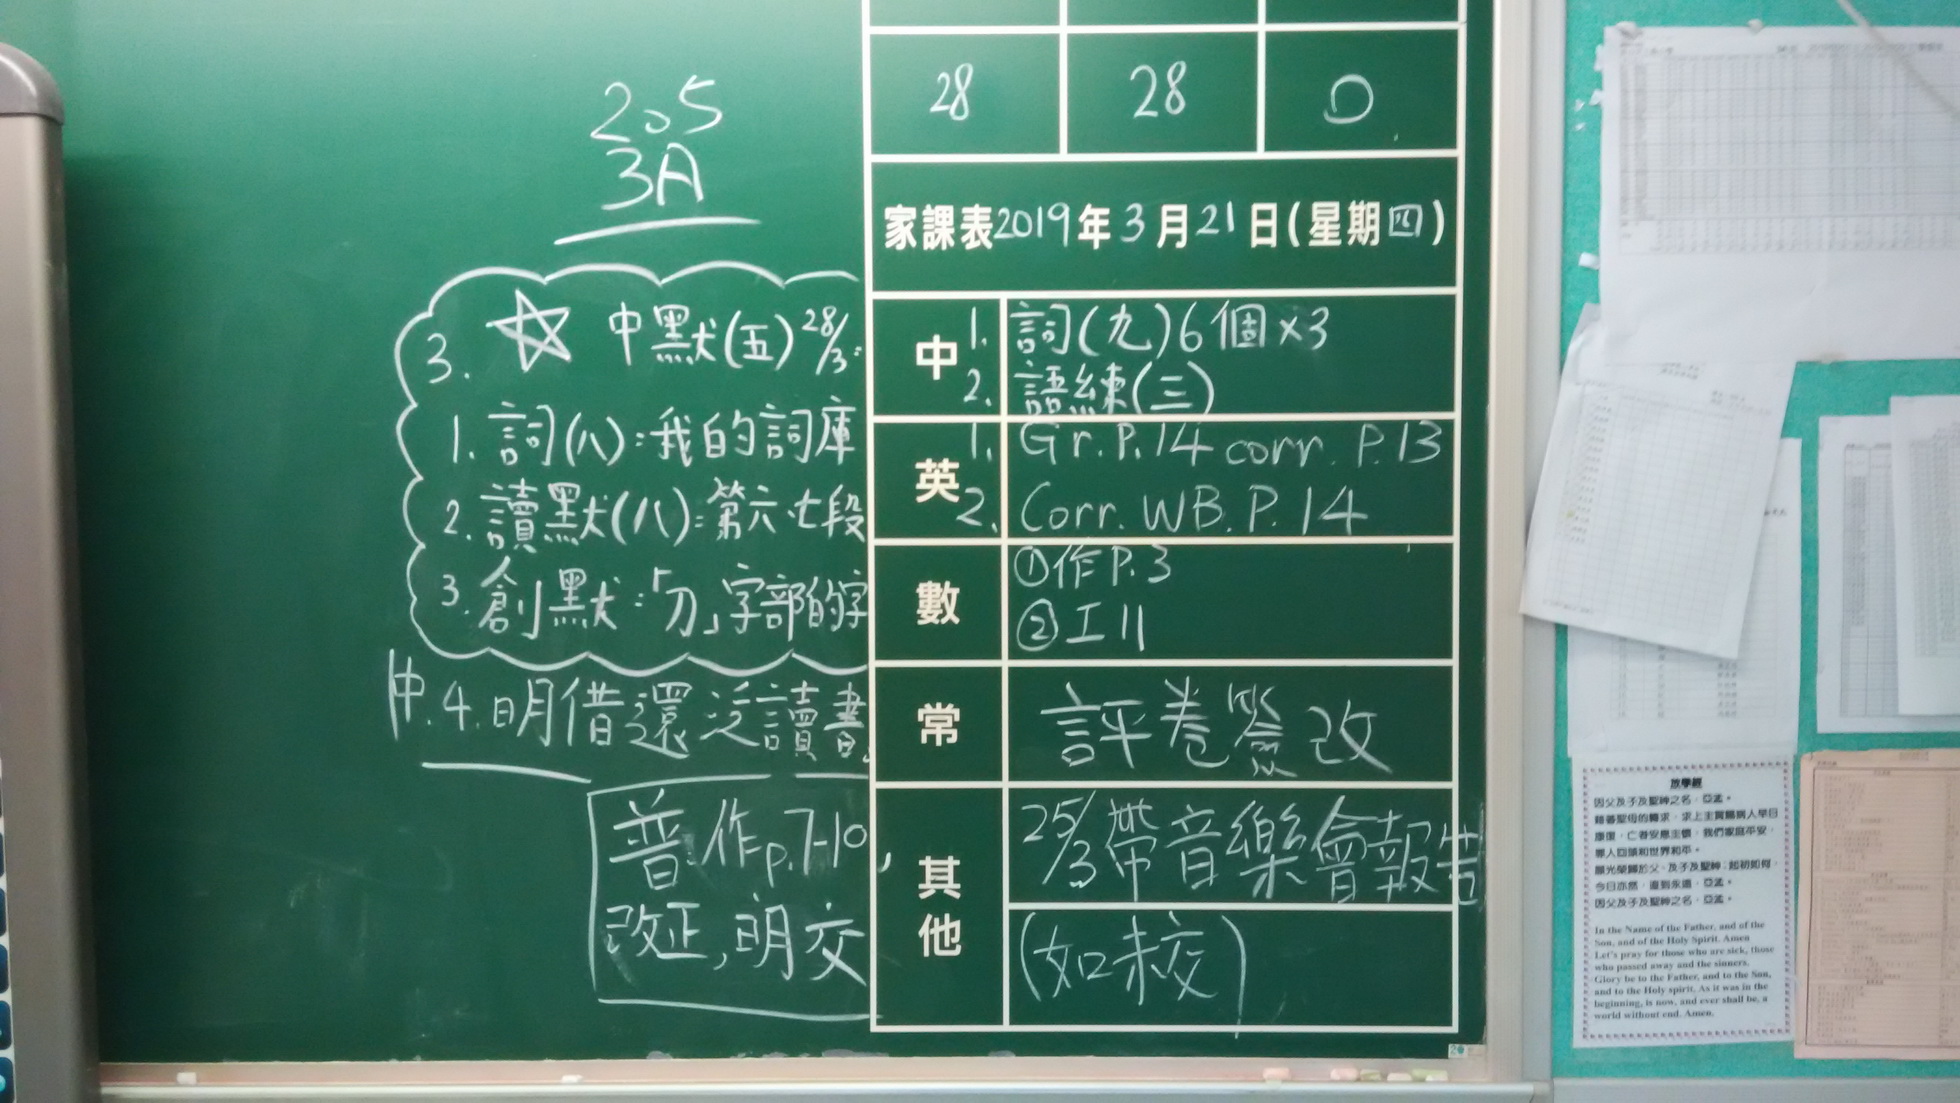 205
3A
3. ☆ 中默(五) 28/3:
1. 詞(八):我的詞庫
2. 讀默(八):第六、七段
3. 創默:「刀」字部的字
中.4.明借還泛讀書。
普:作p.7-10,
改正,明交
28 28 0
家課表2019年3月21日(星期四)
中 1. 詞(九)6個×3
2. 語練(三)
英 1. Gr.P.14 corr. P.13
2. Corr. WB. P. 14
數 ①作P.3
②工11
常 評卷簽改
其他 25/3帶音樂會報告
(如未交)
放學經
因父及子及聖神之名,亞孟。
藉著聖母的轉求,求上主賞賜病人早日
康復,亡者安息主懷,我們家庭平安,
罪人回頭和世界和平。
願光榮歸於父、及子及聖神;起初如何,
今日亦然,直到永遠,亞孟。
因父及子及聖神之名,亞孟。
In the Name of the Father, and of the
Son, and of the Holy Spirit. Amen
Let's pray for those who are sick, those
who passed away and the sinners.
Glory be to the Father, and to the Son,
and to the Holy spirit. As it was in the
beginning, is now, and ever shall be, a
world without end. Amen.